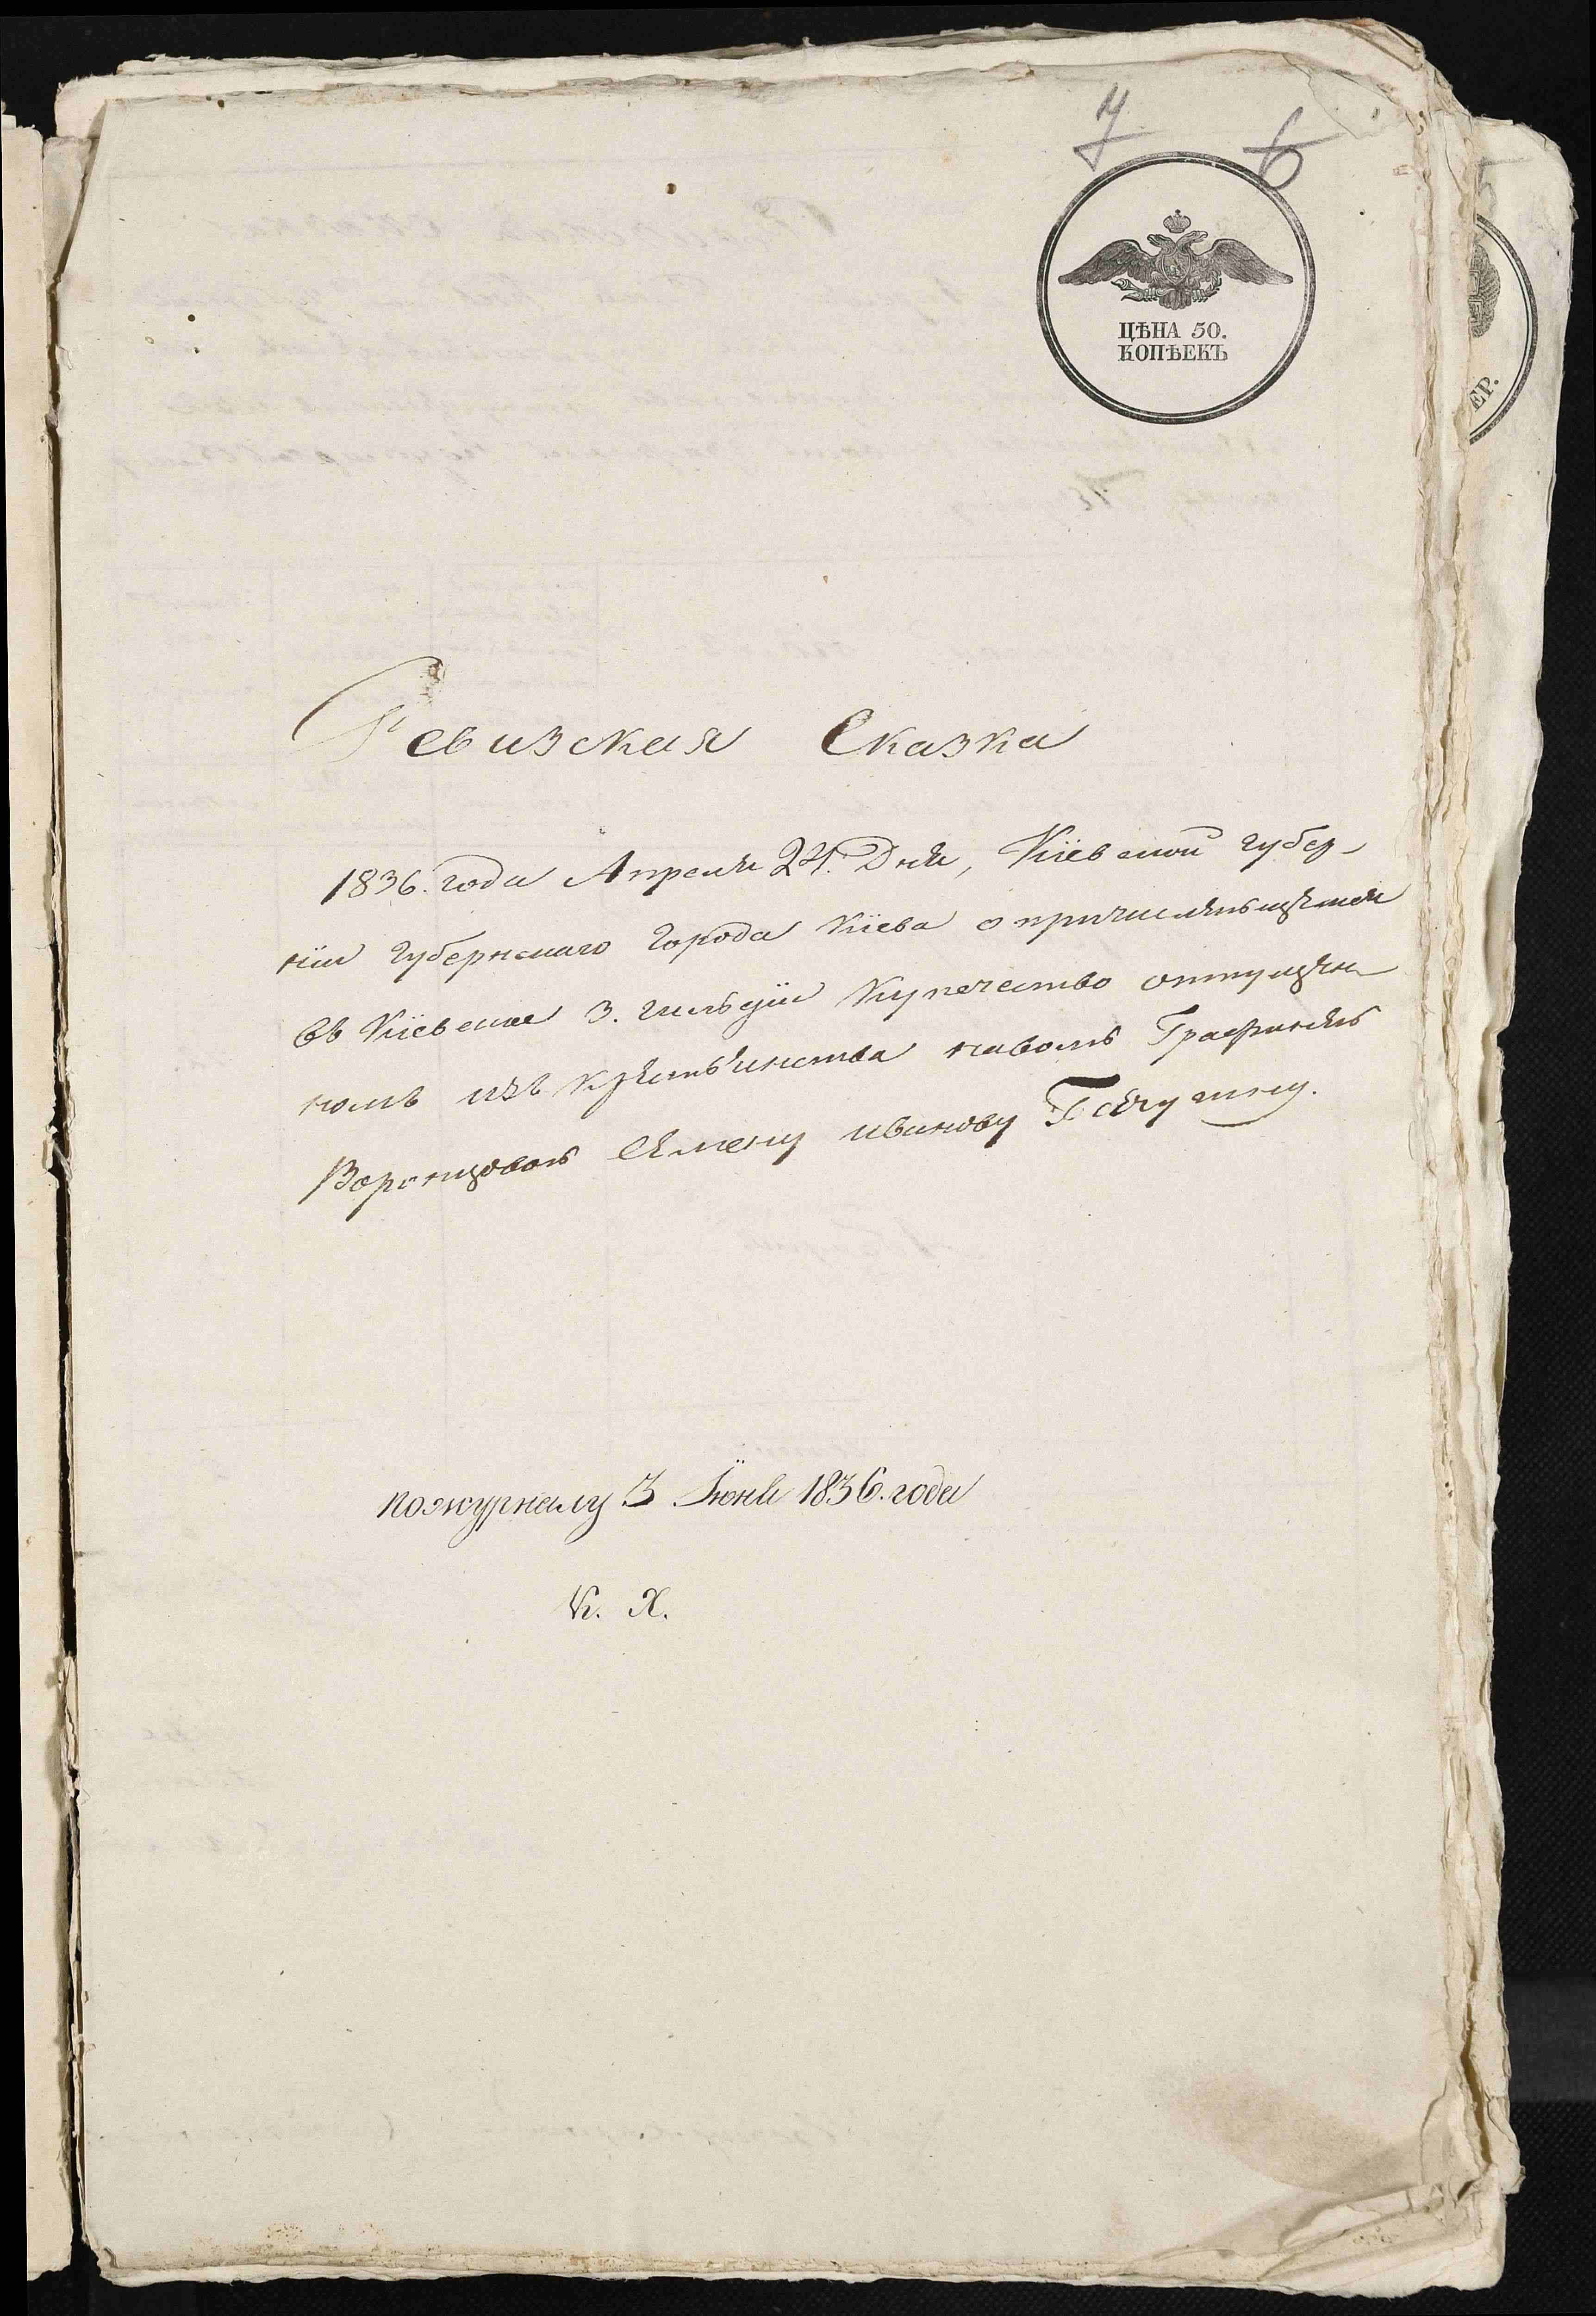 7 6
ЦѢНА 50.
КОПѢЕКЪ
ЕР.
Ревизская Сказка
1836. года Апреля 24. Дня, Кіевской губер-
ніи Губернскаго Города Кіева о причислившемся
въ Кіевское 3. гильдіи Купечество отпущен-
номъ изъ Крестьянства наволю Графинею
Воронцовою Семену Иванову
пожурналу 3 Іюня 1836. года
К. Х.